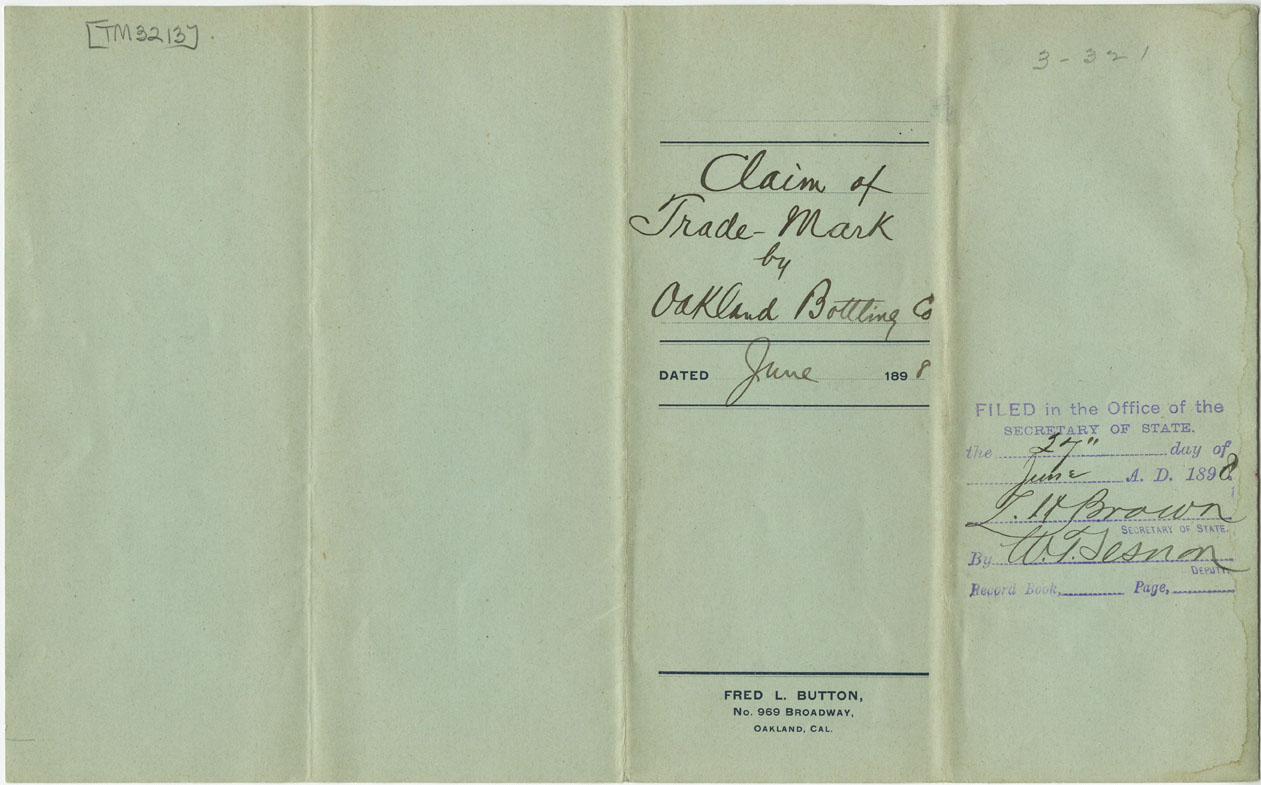 [TM3213]
3-321
Claim of
Trade-Mark
by
Oakland Bottling Co
DATED June 1898
FILED in the Office of the
SECRETARY OF STATE.
the 27" day of
June A. D. 1898
L. H. Brown
SECRETARY OF STATE.
By W. T. Sesnon
DEPUTY.
Record Book, Page,
FRED L. BUTTON,
No. 969 BROADWAY,
OAKLAND, CAL.